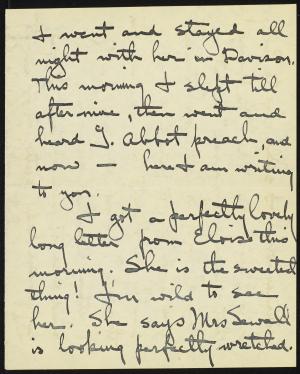 I went and stayed all
night with her in Davison.
This morning I slept till
after nine, then went and
heard G. Abbot preach, and
now — here I am writing
to you.
I got a perfectly lovely
long letter from Eloise this
morning. She is the sweetest
thing! I'm wild to see
her. She says Mrs Sewall
is looking perfectly wretched.